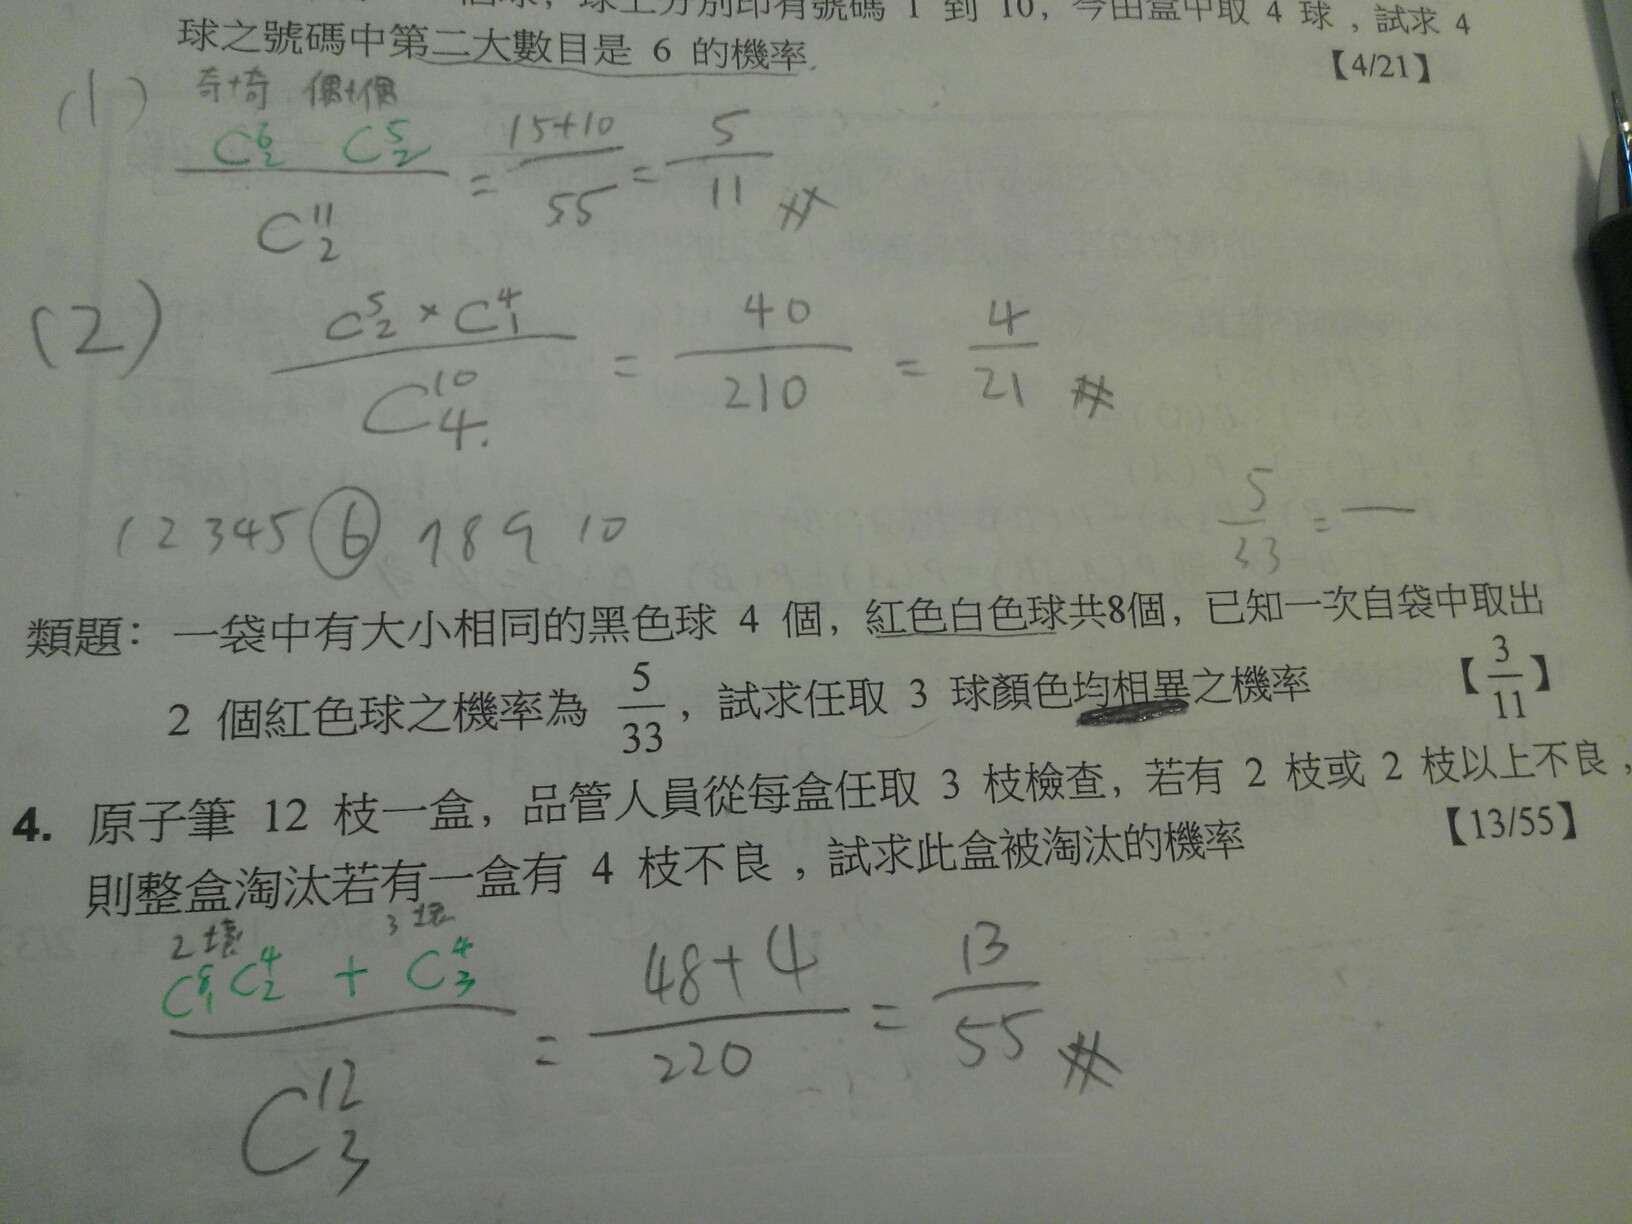 個球，球上分別印有號碼 1 到 10，今由盒中取 4 球，試求 4
球之號碼中第二大數目是 6 的機率. 【4/21】
(1) 奇+奇 偶+偶
C⁶₂ C⁵₂ / C¹¹₂ = 15+10 / 55 = 5/11 #
(2) C⁵₂ × C⁴₁ / C¹⁰₄. = 40/210 = 4/21 #
1 2 3 4 5 ⑥ 7 8 9 10
5/33 = —
類題： 一袋中有大小相同的黑色球 4 個，紅色白色球共8個，已知一次自袋中取出
2 個紅色球之機率為 5/33，試求任取 3 球顏色均相異之機率 【3/11】
4. 原子筆 12 枝一盒，品管人員從每盒任取 3 枝檢查，若有 2 枝或 2 枝以上不良，
則整盒淘汰若有一盒有 4 枝不良，試求此盒被淘汰的機率 【13/55】
2壞 3壞
C⁸₁ C⁴₂ + C⁴₃ / C¹²₃ = 48+4 / 220 = 13/55 #